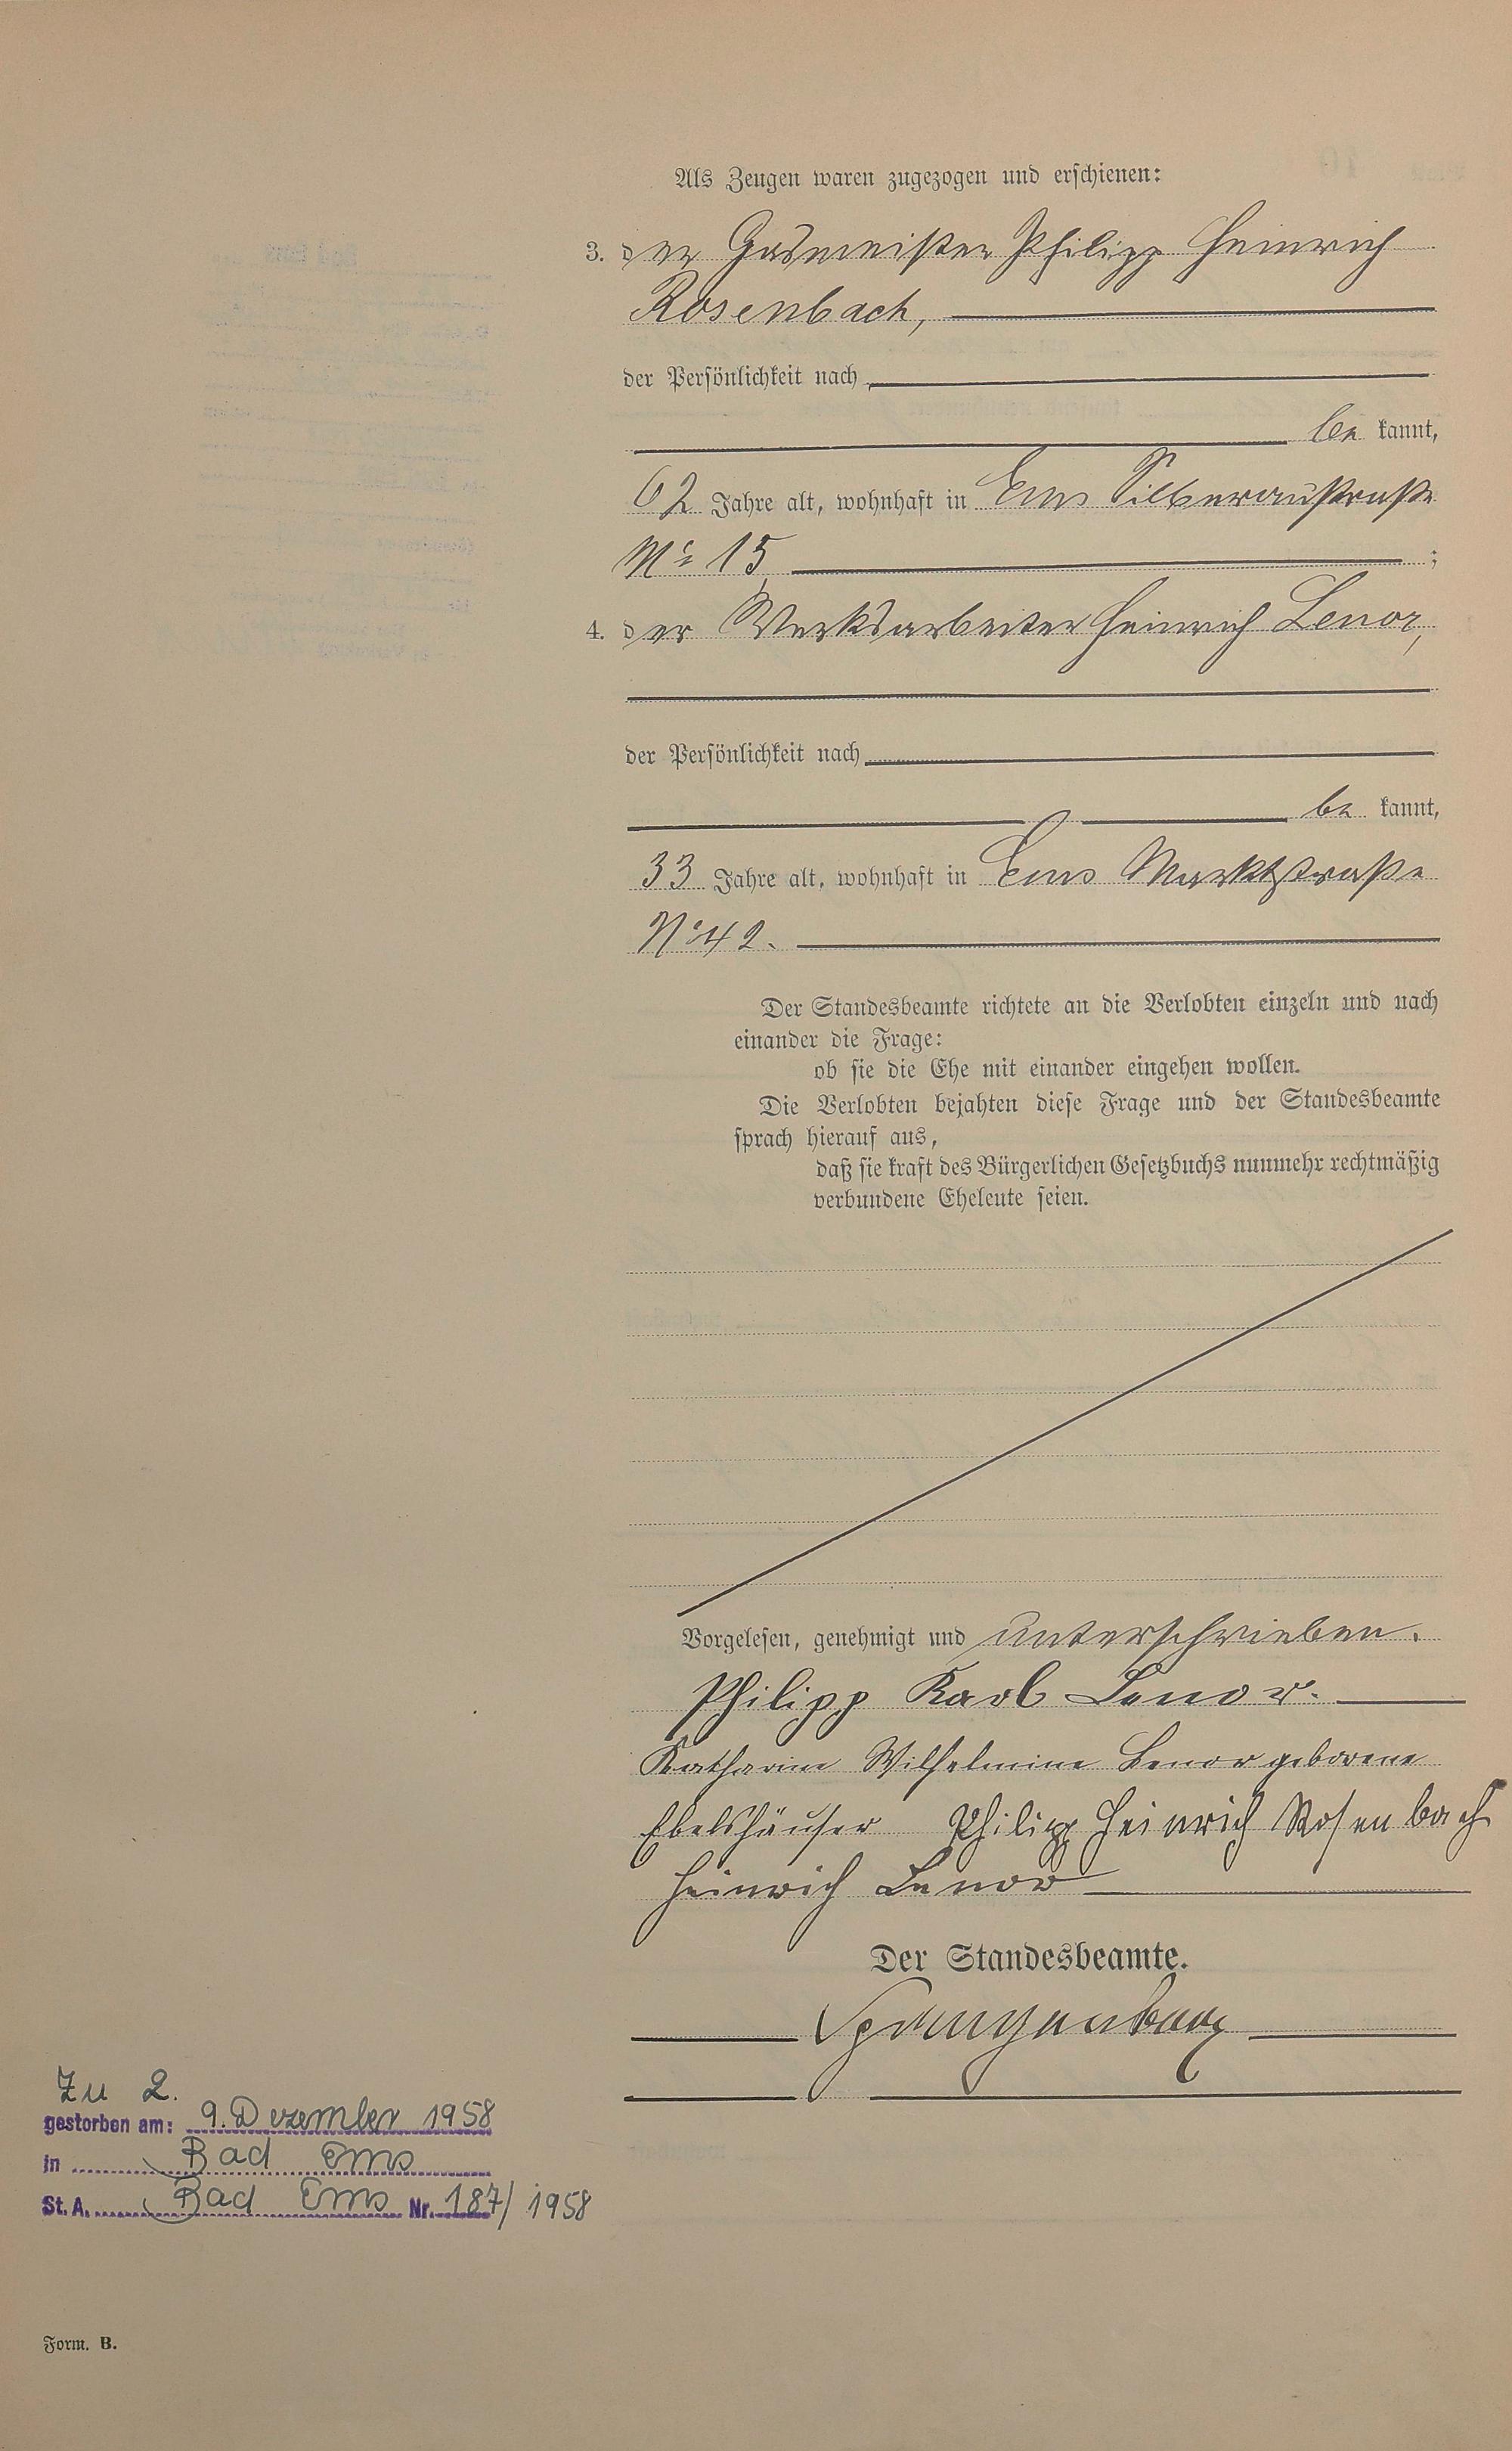 Als Zeugen waren zugezogen und erschienen:
3. der Gasmeister Philipp Heinrich
Rosenbach,
der Persönlichkeit nach
be kannt,
62 Jahre alt, wohnhaft in Ems Silberaustraße
No 15 ;
4. der Werksarbeiter Heinrich Lenor,
der Persönlichkeit nach
be kannt,
33 Jahre alt, wohnhaft in Ems Marktstraße
No 42.
Der Standesbeamte richtete an die Verlobten einzeln und nach
einander die Frage:
ob sie die Ehe mit einander eingehen wollen.
Die Verlobten bejahten diese Frage und der Standesbeamte
sprach hierauf aus,
daß sie kraft des Bürgerlichen Gesetzbuchs nunmehr rechtmäßig
verbundene Eheleute seien.
Vorgelesen, genehmigt und unterschrieben.
Philipp Karl Lenor.
Katharine Wilhelmine Lenor geborene
Ebelshäuser Philipp Heinrich Rosenbach
Heinrich Lenor
Der Standesbeamte.
Zu 2.
gestorben am: 9. Dezember 1958
in Bad Ems
St. A. Bad Ems Nr. 187/1958
Form. B.